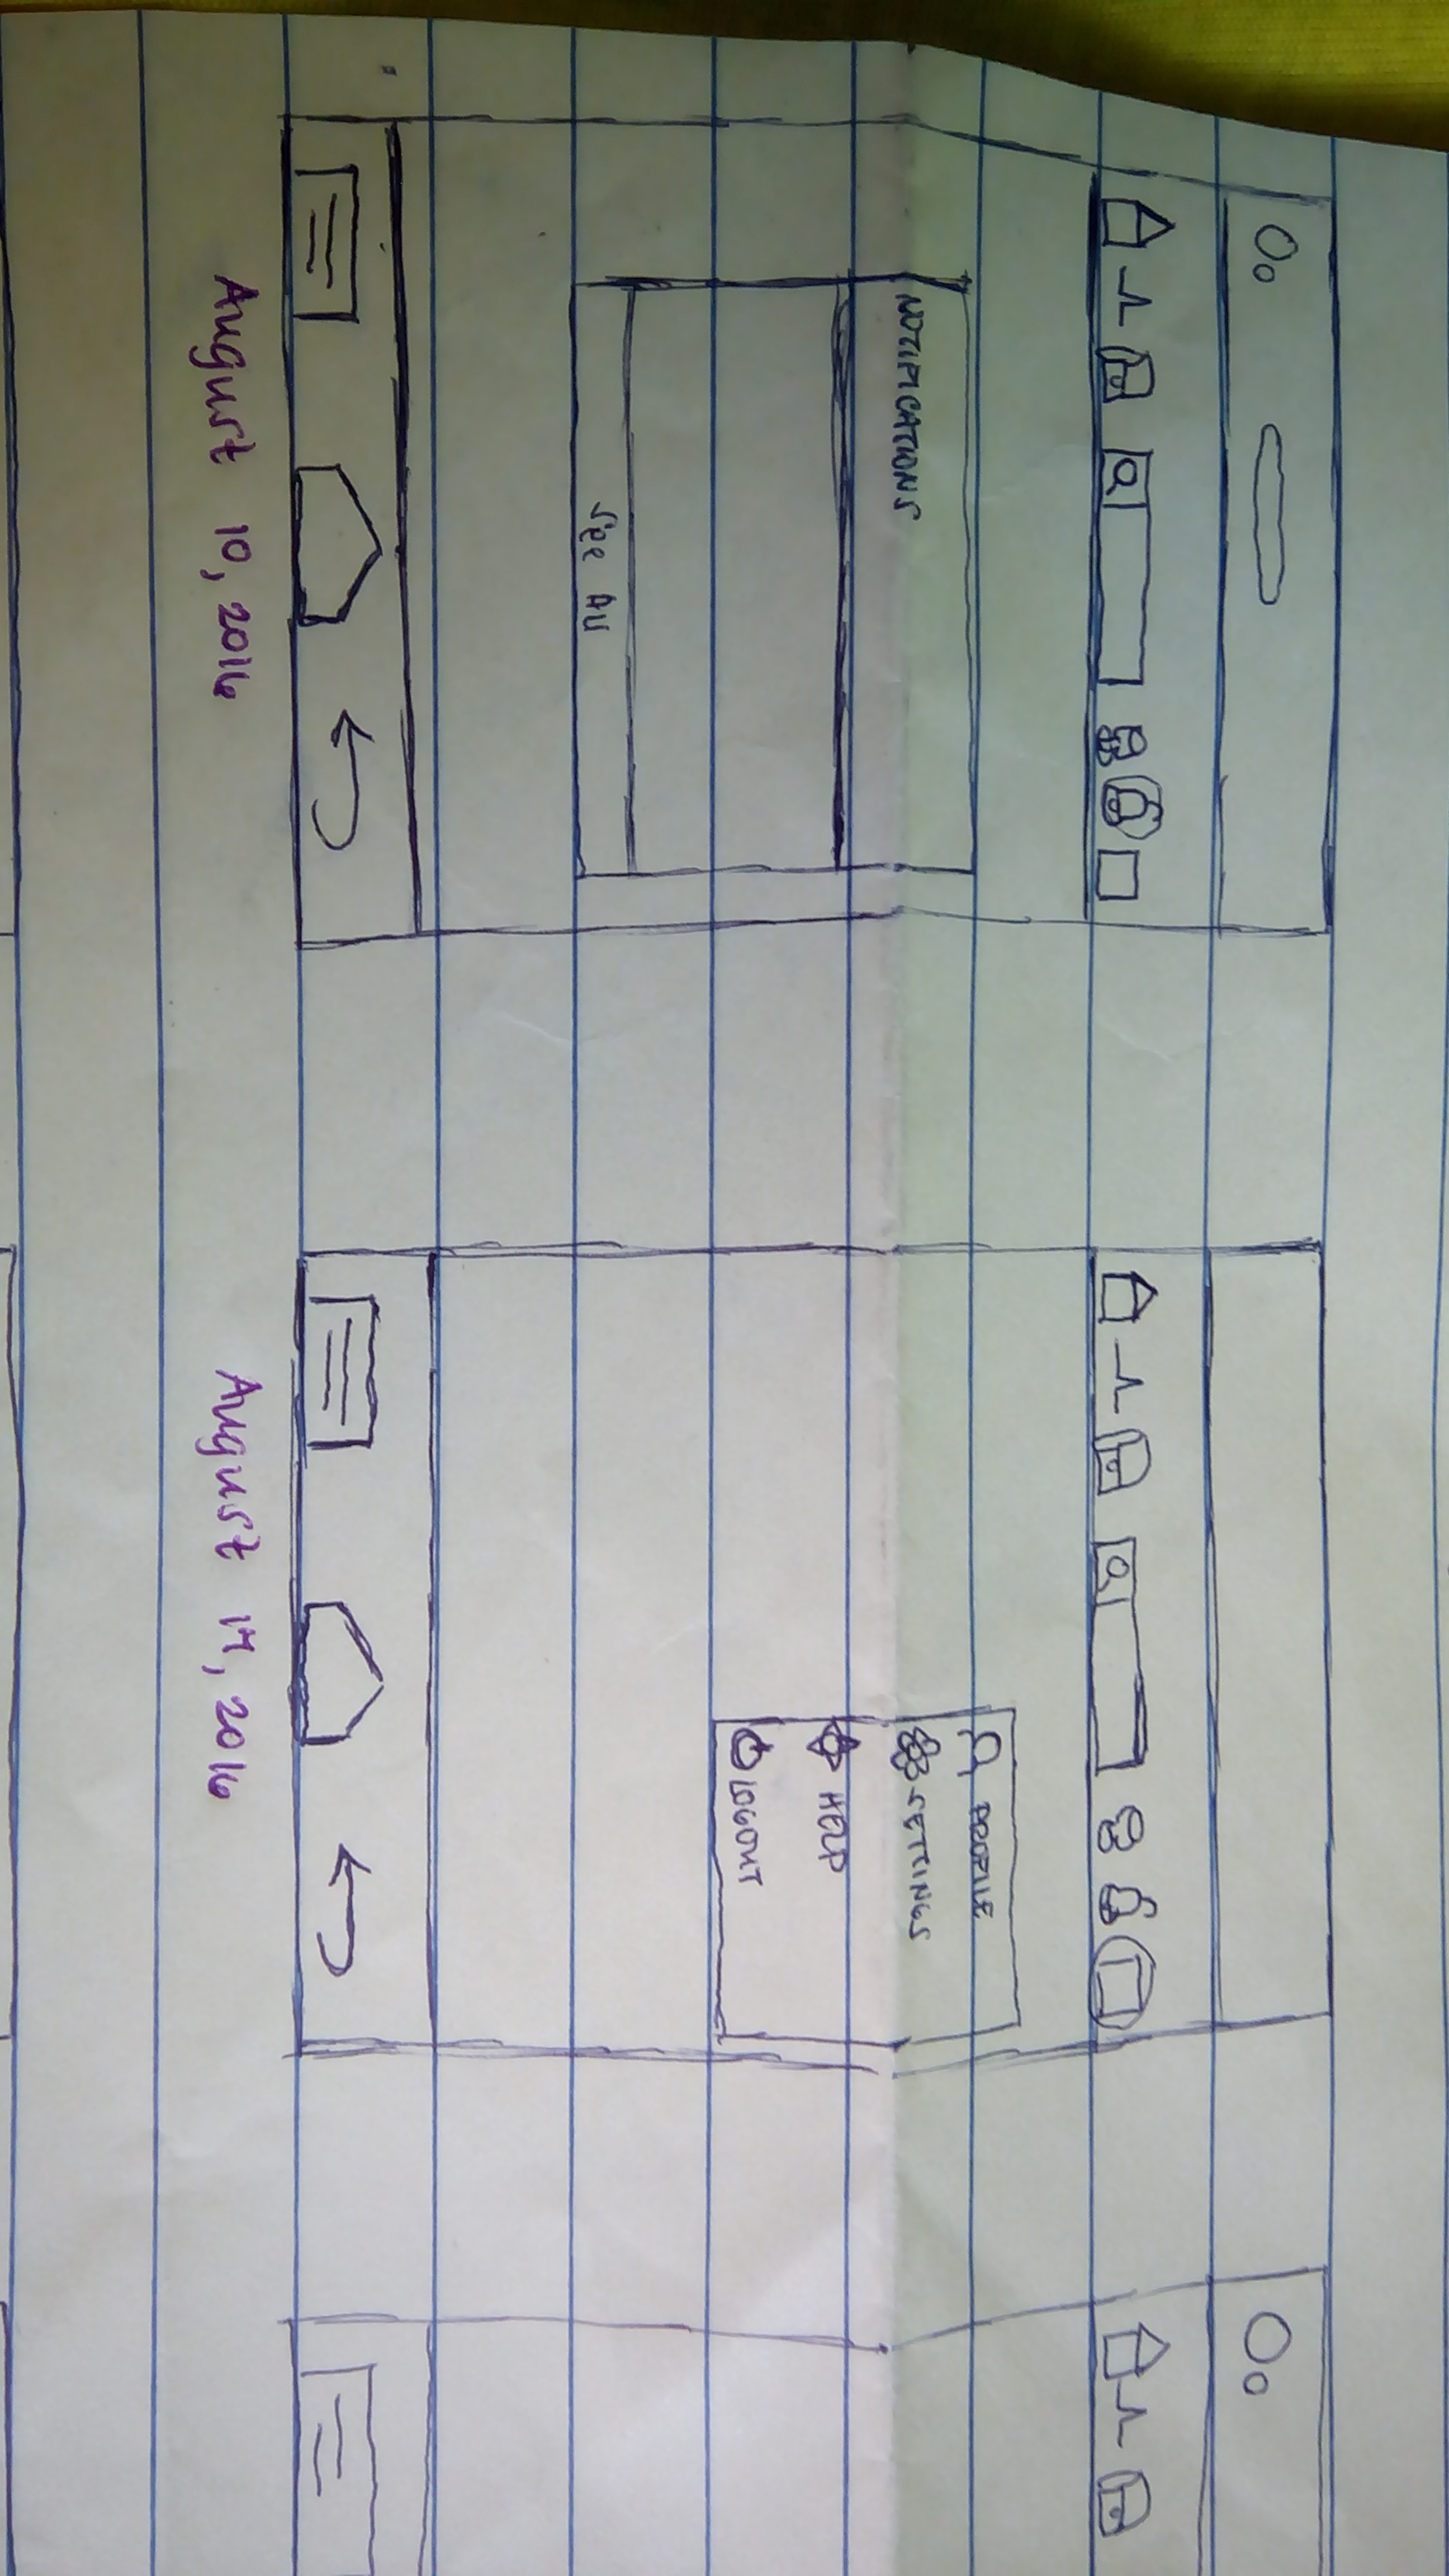 NOTIFICATIONS
See All
August 10, 2016
PROFILE
SETTINGS
HELP
LOGOUT
August 14, 2016